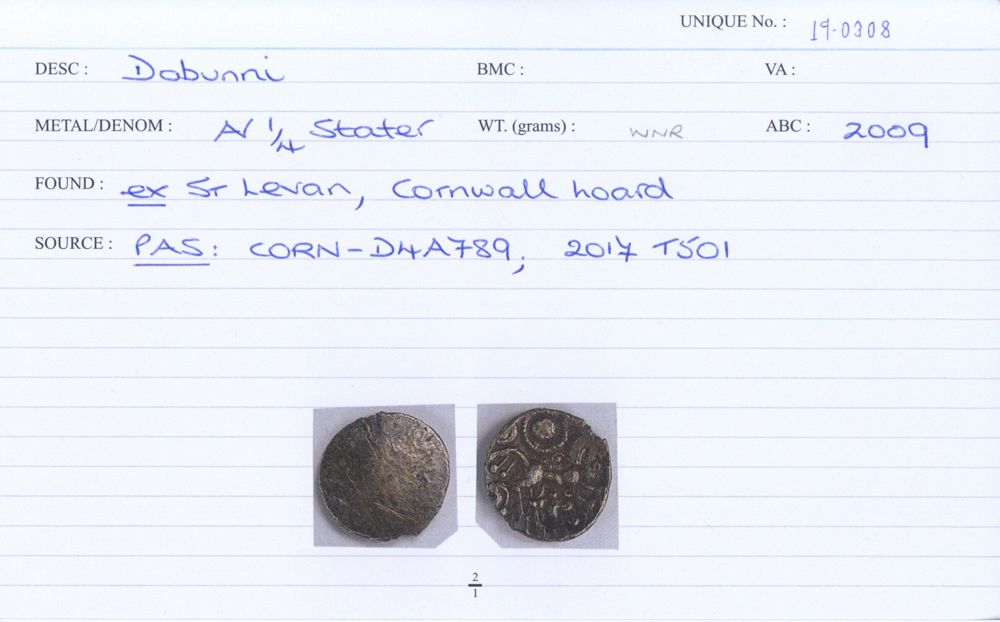 UNIQUE No. : 19-0308
DESC : Dobunni BMC : VA :
METAL/DENOM : AV 1/4 Stater WT. (grams) : WNR ABC : 2009
FOUND : ex St Levan, Cornwall hoard
SOURCE : PAS: CORN-D4A789; 2017 T501
2
1